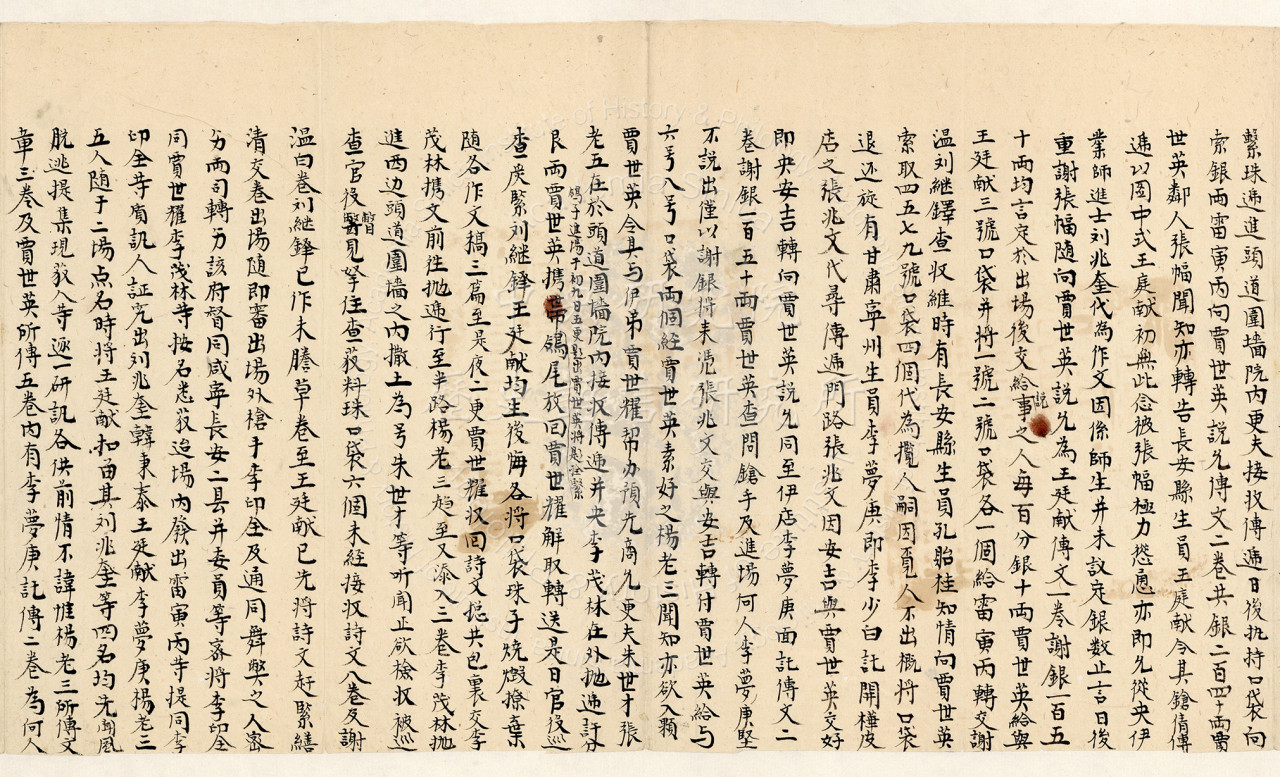 繫珠遞進頭道圍墻院內更夫接收傳遞日後执持口袋向
索銀両雷寅丙向賈世英說允傳文二卷共銀二百四十両賈
世英鄰人張幅聞知亦轉告長安縣生員王庭献令其鎗倩傳
遞以圖中式王庭献初無此念被張幅極力慫恿亦即允從央伊
業師進士刘兆奎代為作文因係師生并未設定銀数止言日後
重謝張幅随向賈世英說允為王廷献傳文一卷謝銀一百五
十両均言定於出場後交給說事之人每百分銀十両賈世英給與
王廷献三號口袋并將一號二號口袋各一個給雷寅丙轉交謝
温刘継鐸查収維時有長安縣生員孔胎桂知情向賈世英
索取四五七九號口袋四個代為攬人嗣因覓人不出概將口袋
退还旋有甘肅寧州生員李夢庚即李少白託開樺皮
店之張兆文代尋傳遞門路張兆文因安吉與賈世英交好
即央安吉轉向賈世英說允同至伊店李夢庚面託傳文二
卷謝銀一百五十両賈世英查問鎗手及進場何人李夢庚堅
不說出僅以謝銀將来凴張兆文交與安吉轉付賈世英給与
六号八号口袋両個經賈世英素好之楊老三聞知亦欲入夥
賈世英令其与伊弟賈世耀帮办預先商允更夫朱世才張
老五在於頭道圍墻院內接收傳遞并央李茂林在外抛遞許分
鴿子進場于初九日五更題出賈世英將題詮繫
艮両賈世英携帶鴿尾放回賈世耀解取轉送是日官役巡
查严緊刘継鋒王廷献均生後悔各將口袋珠子燒燬撩棄
随各作文稿三篇至是夜二更賈世耀収回詩文捴共包裹交李
茂林携文前往抛遞行至半路楊老三趋至又添入二卷李茂林抛
進西边頭道圍墻之內撒土為号朱世才等听聞正欲檢収被巡
查官役瞥見拏住查获料珠口袋六個未經接収詩文八卷及謝
温白卷刘継鋒已作未謄草卷至王廷献已先將詩文赶緊繕
清交卷出場随即審出場外槍手李印全及通同舞獘之人密
劣両司轉劣該府督同咸寧長安二县并委員等密將李印全
同賈世耀李茂林等按名悉获追場內發出雷寅丙等提同李
印全等質訊人証究出刘兆奎韓東泰王廷献李夢庚楊老三
五人随于二場点名時將王廷献扣留其刘兆奎等四名均先聞風
脫逃提集現获人等逐一研訊各供前情不諱惟楊老三所傳文
章三卷及賈世英所傳五卷內有李夢庚託傳二卷為何人